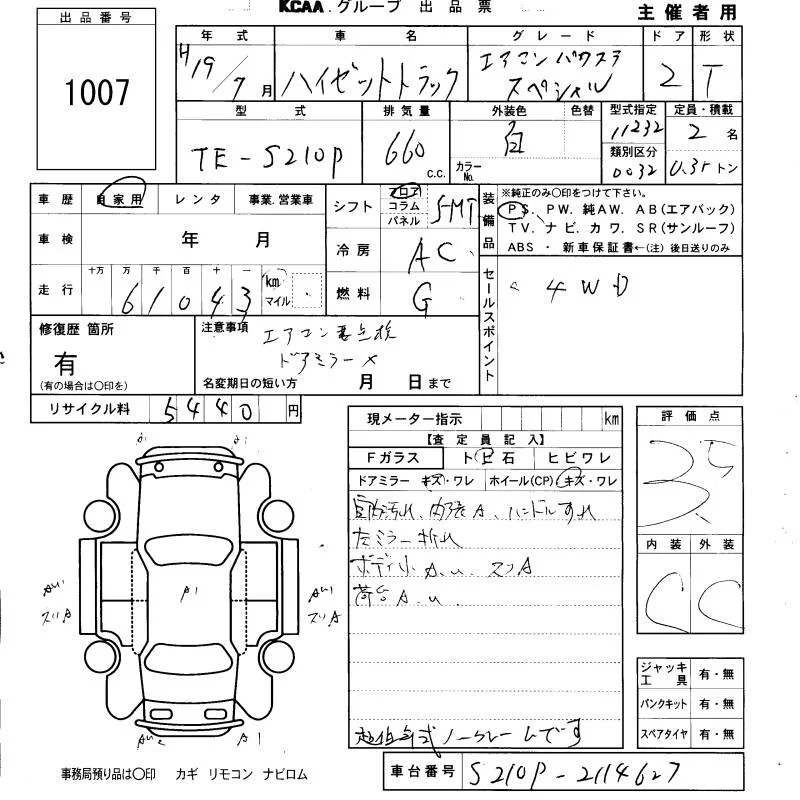 KCAA.グループ 出品票
主催者用
出品番号
1007
年式 車名 グレード ドア 形状
H19/7月 ハイゼットトラック エアコンパワステ スペシャル 2 T
型式 排気量 外装色 色替 型式指定 定員・積載
TE-S210P 660 c.c. 白 カラーNo. 11232 2名
類別区分 0032 0.35トン
車歴 自家用 レンタ 事業.営業車
シフト フロア コラム パネル 5MT
装備品 ※純正のみ○印をつけて下さい。
PS. PW. 純AW. AB(エアバック)
TV. ナビ. カワ. SR(サンルーフ)
ABS ・ 新車保証書←(注) 後日送りのみ
車検 年 月
冷房 AC
走行 十万 万 千 百 十 一
61043 km マイル
燃料 G
セールスポイント
4WD
修復歴 箇所
有
(有の場合は○印を)
注意事項 エアコン要点検
ドアミラー×
名変期日の短い方 月 日まで
リサイクル料 5440円
現メーター指示 km
【査定員記入】
Fガラス トビ石 ヒビワレ
ドアミラー キズ・ワレ ホイール(CP) キズ・ワレ
室内汚れ、内張A、ハンドルすれ
左ミラー折れ
ボディ小A.U. スリA
荷台A.U.
ノークレームです
評価点
3.5
内装 外装
C C
A1
スリA
スリA
A1
ジャッキ工具 有・無
パンクキット 有・無
スペアタイヤ 有・無
事務局預り品は○印 カギ リモコン ナビロム
車台番号 S210P-2114627